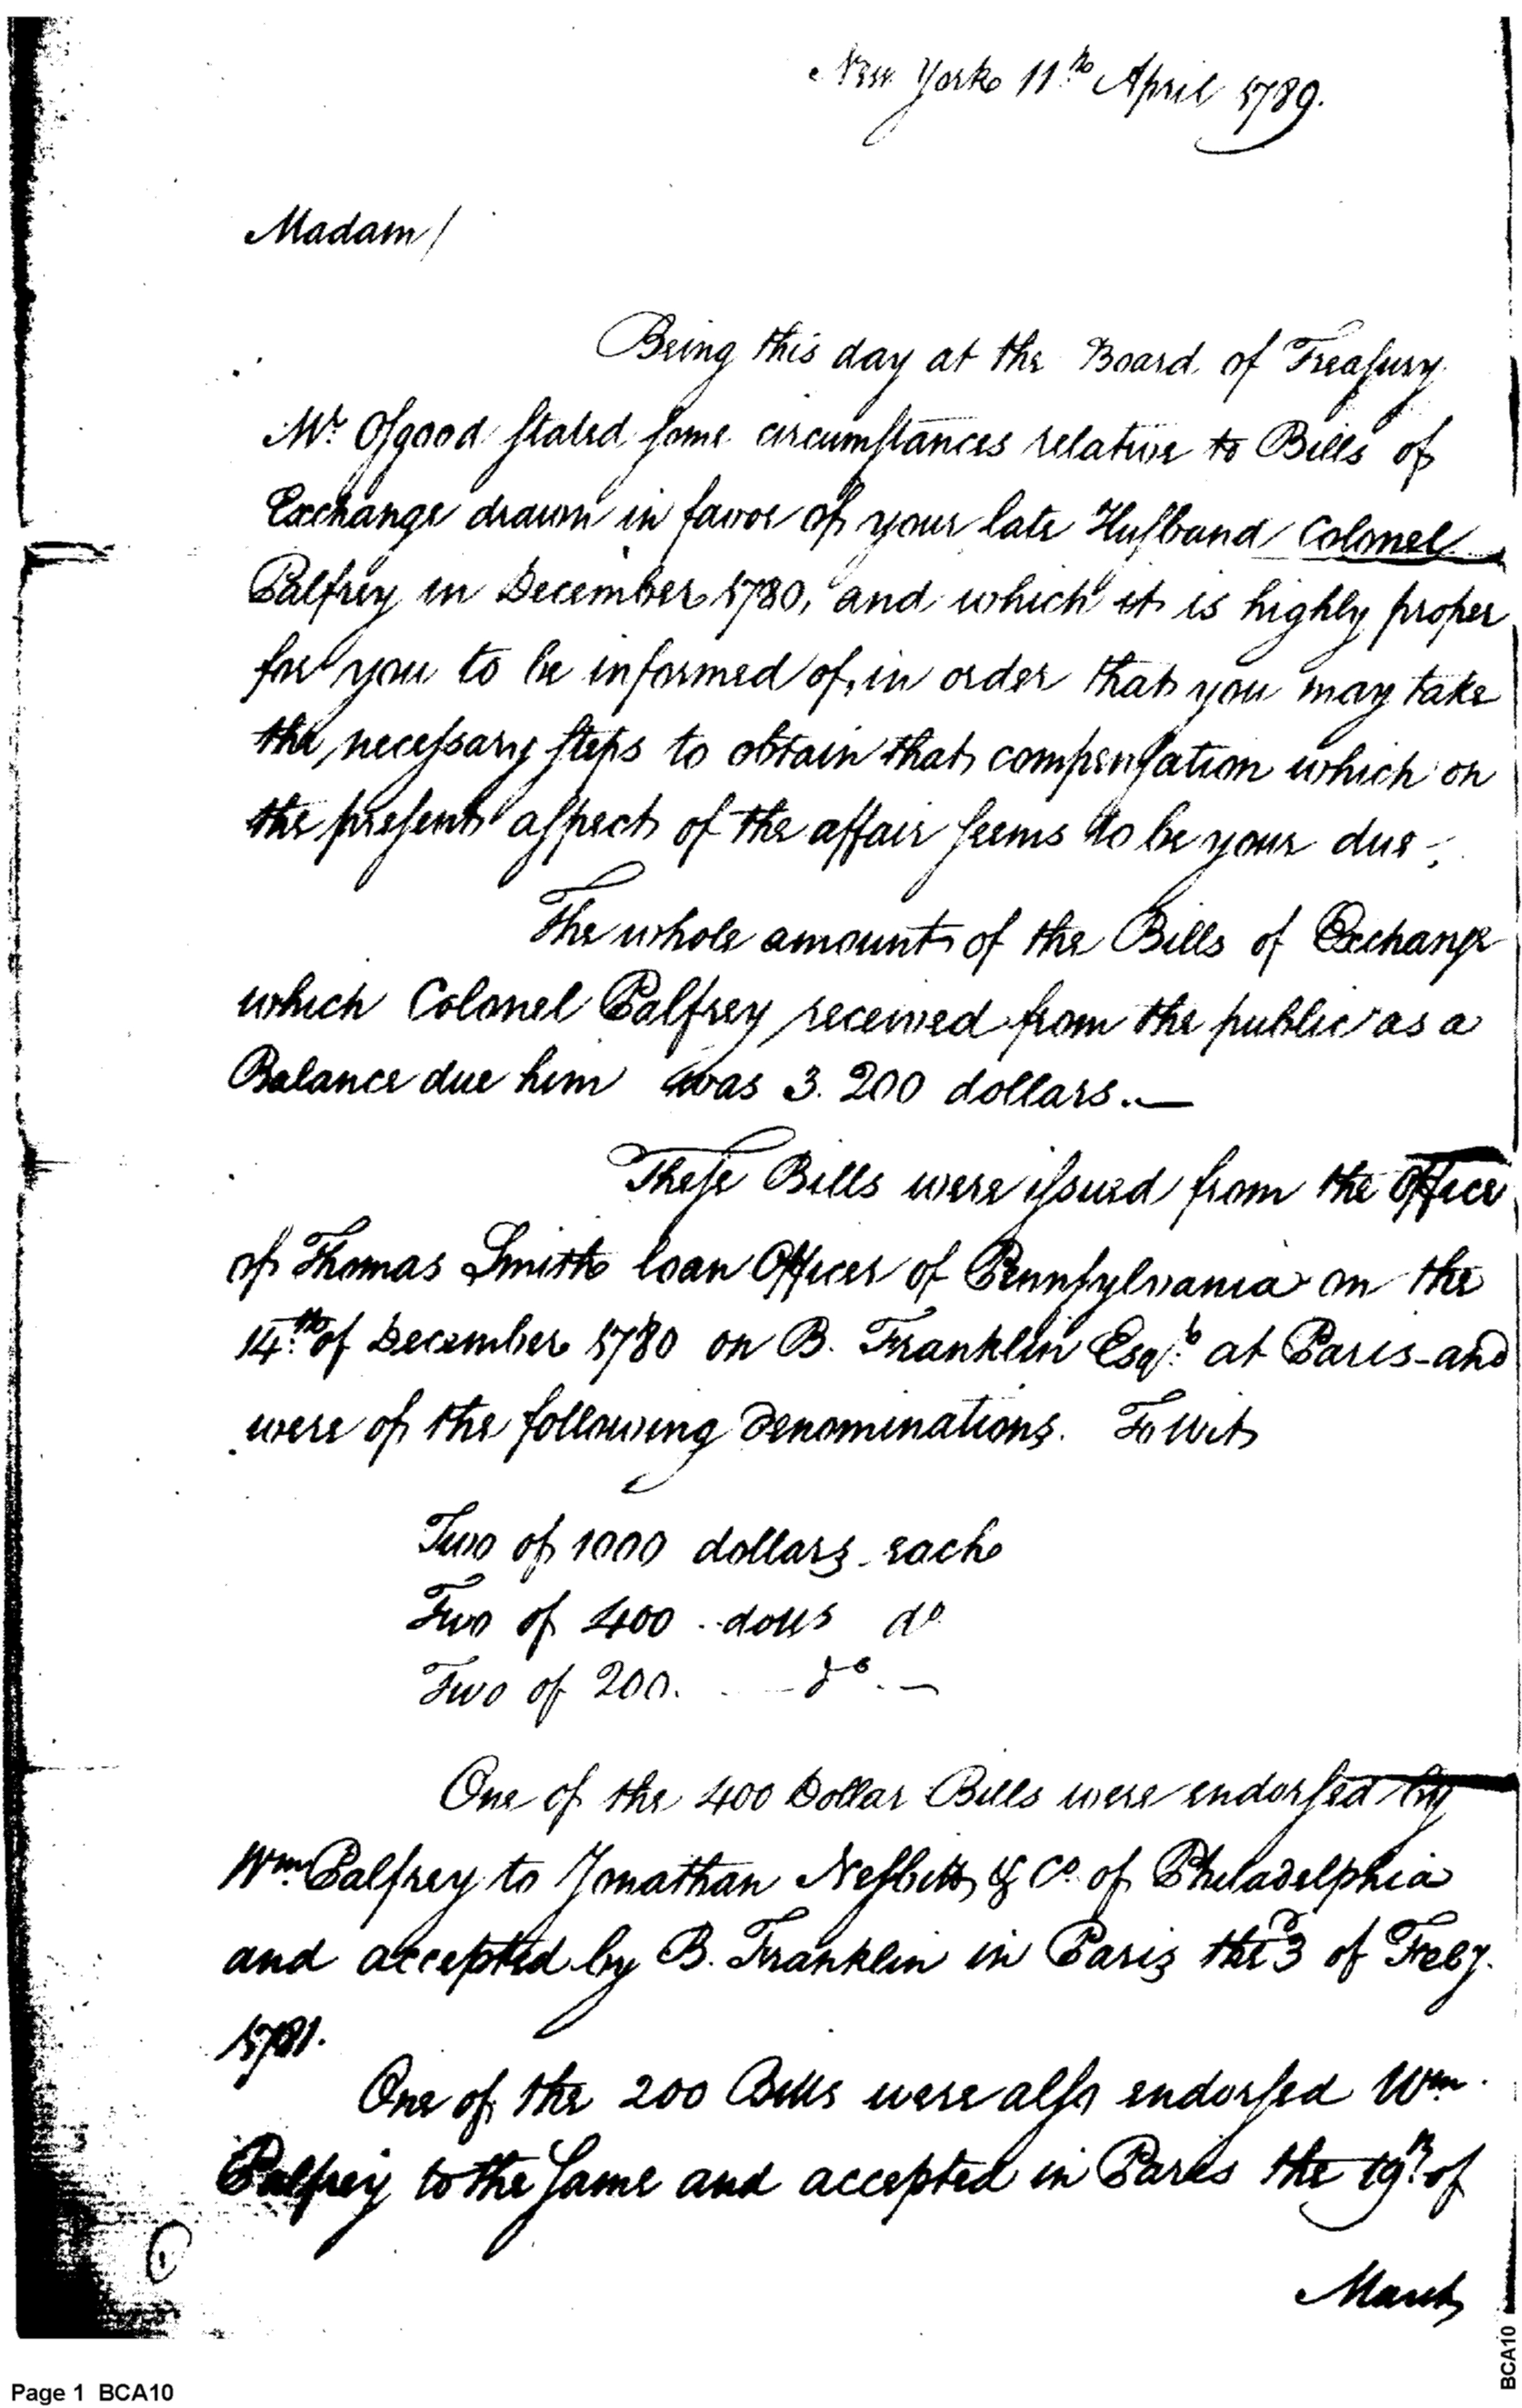 New York 11th April 1789.
Madam/
Being this day at the Board of Treasury
Mr. Osgood stated some circumstances relative to Bills of
Exchange drawn in favor of your late Husband Colonel
Palfrey in December 1780, and which it is highly proper
for you to be informed of, in order that you may take
the necessary steps to obtain that compensation which on
the present aspect of the affair seems to be your due.
The whole amount of the Bills of Exchange
which Colonel Palfrey received from the public as a
Balance due him was 3.200 dollars.—
These Bills were issued from the Office
of Thomas Smith loan Officer of Pennsylvania on the
14th of December 1780 on B. Franklin Esqr. at Paris - and
were of the following Denominations. To Wit
Two of 1000 dollars each
Two of 400 - dolls do
Two of 200. - do. —
One of the 400 Dollar Bills were endorsed by
Wm. Palfrey to Jonathan Nesbitt & Co. of Philadelphia
and accepted by B. Franklin in Paris the 3d of Feby.
1781.
One of the 200 Bills were also endorsed Wm.
Palfrey to the same and accepted in Paris the 19th of
March
Page 1 BCA10
BCA10